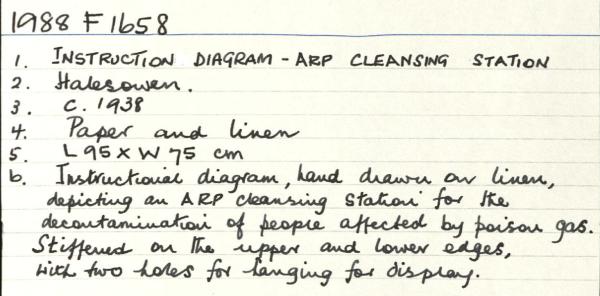 1988 F 1658
1. INSTRUCTION DIAGRAM - ARP CLEANSING STATION
2. Halesowen.
3. C. 1938
4. Paper and linen
5. L 95 X W 75 cm
6. Instructional diagram, hand drawn on linen,
depicting an ARP cleansing Station for the
decontamination of people affected by poison gas.
Stiffened on the upper and lower edges,
with two holes for hanging for display.